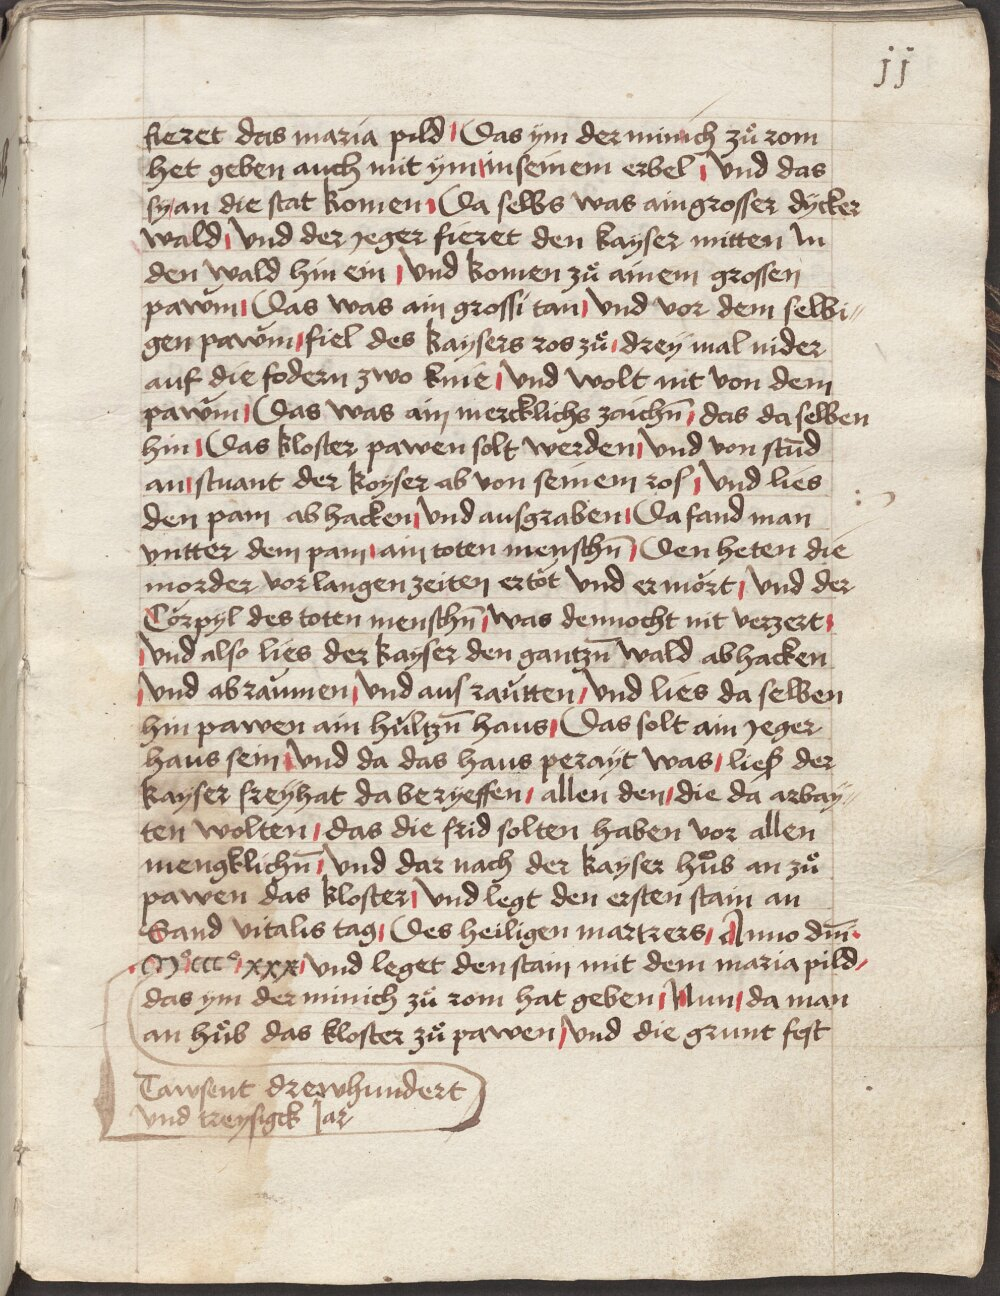 jj
fieret das maria pild Das ym der minich zů rom
het geben auch mit ym in seinem erbel Und das
sy an die stat komen Da selbs was ain grosser dycker
wald Und der jeger fieret den kayser mitten In
den wald hin ein Und komen zů ainem grossen
pawm Das was ain grossi tan Und vor dem selbi//
gen pawm fiel des kaysers ros zů drey mal nider
auf die fodern zwo knie Und wolt nit von dem
pawm Das was ain mercklichs zaichn̄ das da selben
hin Das kloster pawen solt werden Und von stūd
an stuant der kayser ab von seinem ros Und lies
den pam ab hacken Und ausgraben Da fand man
vntter dem pam ain toten menschn̄ Den heten die
morder vor langen zeiten ertöt Und ermört Und der
Cörpyl des toten menschn̄ was dennocht nit verzert
Und also lies der kayser den gantzn̄ wald ab hacken
Und ab raumen Und aus rautten Und lies da selben
hin pawen ain hültzn̄ haus Das solt ain jeger
haus sein Und da das haus perayt was ließ der
kayser freyhat da beryeffen allen den die da arbay//
ten wolten das die frid solten haben vor allen
mengklichn̄ Und dar nach der kayser hůb an zů
pawen das kloster Und legt den ersten stain an
Sand vitalis tag Des heiligen martrers Anno dm̄
Mº cccº xxx Und leget den stain mit dem maria pild
das ym der minich zů rom hat geben Nun da man
an hůb das kloster zů pawen Und die grunt fest
Tawsent drewhundert
vnd treysigck Jar